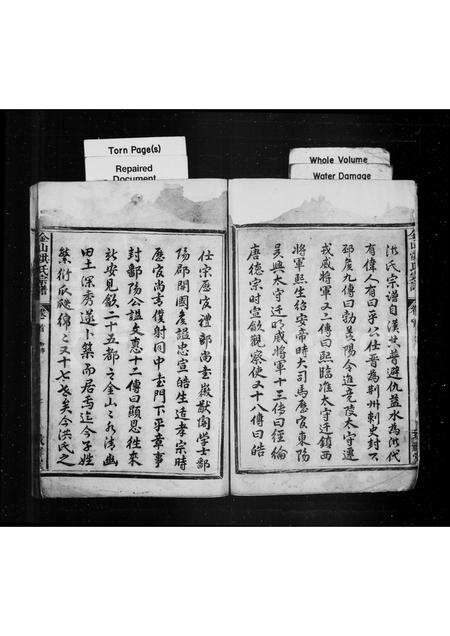 Torn Page(s)
Repaired
Document
Whole Volume
Water Damage
金山洪氏宗譜
洪氏宗谱自漢共普避仇益水為洪代
有偉人有曰乎公仕晉為荆州刺史封下
邳侯九傳曰勃陽今進竟陵太守遷
戎威將軍又二傳曰熙臨淮太守迁鎮西
將軍熙生紹安帝時大司馬歷官東陽
吴興太守迁明威將軍十三傳曰經綸
唐德宗時宣歙觀察使又十八傳曰皓
仕宗歷官禮部尚書徽猷阁学士鄱
陽郡開國侯諡忠宣皓生适孝宗時
歷官尚書僕射同中書門下平章事
封鄱陽公諡文惠十二傳曰顯恩徃來
新安見歙二十五都之金山山水清幽
田土深秀遂卜築而居焉迄今子姓
蕃衍瓜瓞綿綿又十七世矣今洪氏之
金山洪氏宗譜
卷首